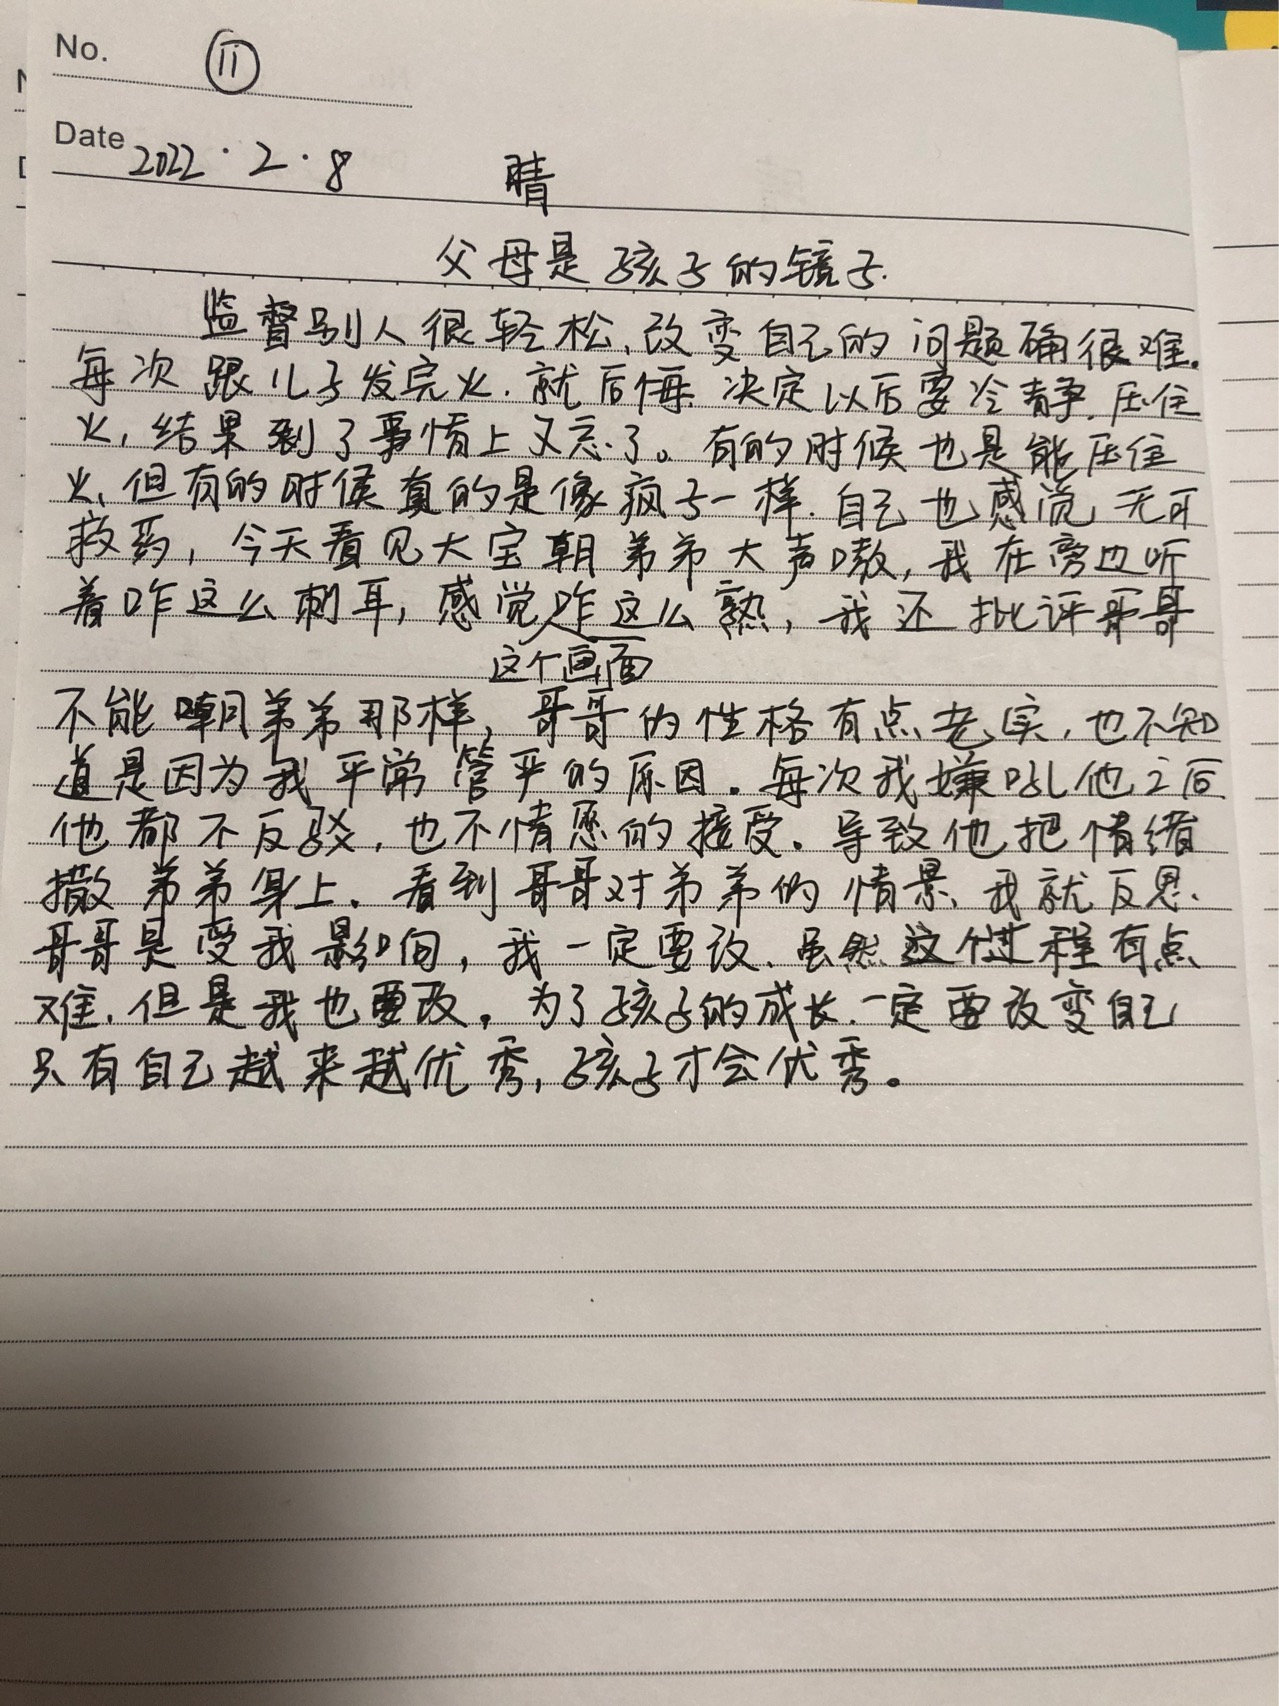 No. ⑪
Date 2022.2.8 晴
父母是孩子的镜子.
监督别人很轻松,改变自己的问题确很难.
每次跟儿子发完火.就后悔.决定以后要冷静.压住
火,结果到了事情上又忘了。有的时候也是能压住
火,但有的时候真的是像疯子一样.自己也感觉无可
救药,今天看见大宝朝弟弟大声嗷,我在旁边听
着咋这么刺耳,感觉这个画面咋这么熟,我还批评哥哥
不能嘲弟弟那样,哥哥的性格有点老实,也不知
道是因为我平常管严的原因。每次我嫌吼他之后
他都不反驳,也不情愿的接受。导致他把情绪
撒弟弟身上。看到哥哥对弟弟的情景、我就反思.
哥哥是受我影响,我一定要改、虽然这个过程有点
难.但是我也要改。为了孩子的成长.一定要改变自己
只有自己越来越优秀,孩子才会优秀。